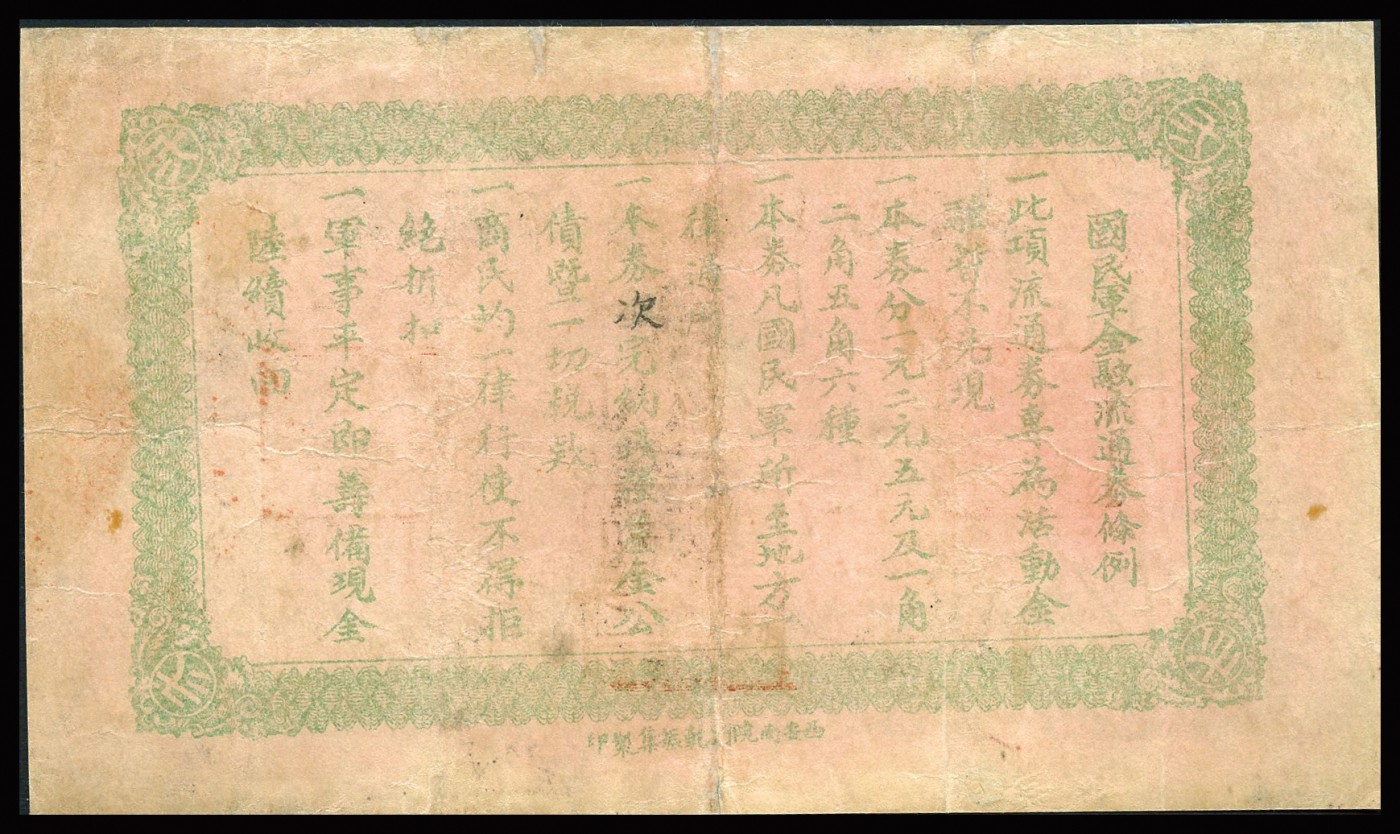 國民軍金融流通券條例
一此項流通券專為活動金
融暫不兌現
一本券分一元二元五元及一角
二角五角六種
一本券凡國民軍所至地方一
律通用
一本券次完納 釐金公
債暨一切稅款
一商民均一律行使不得拒
絕折扣
一軍事平定即籌備現金
陸續收回
西安南院 集製印